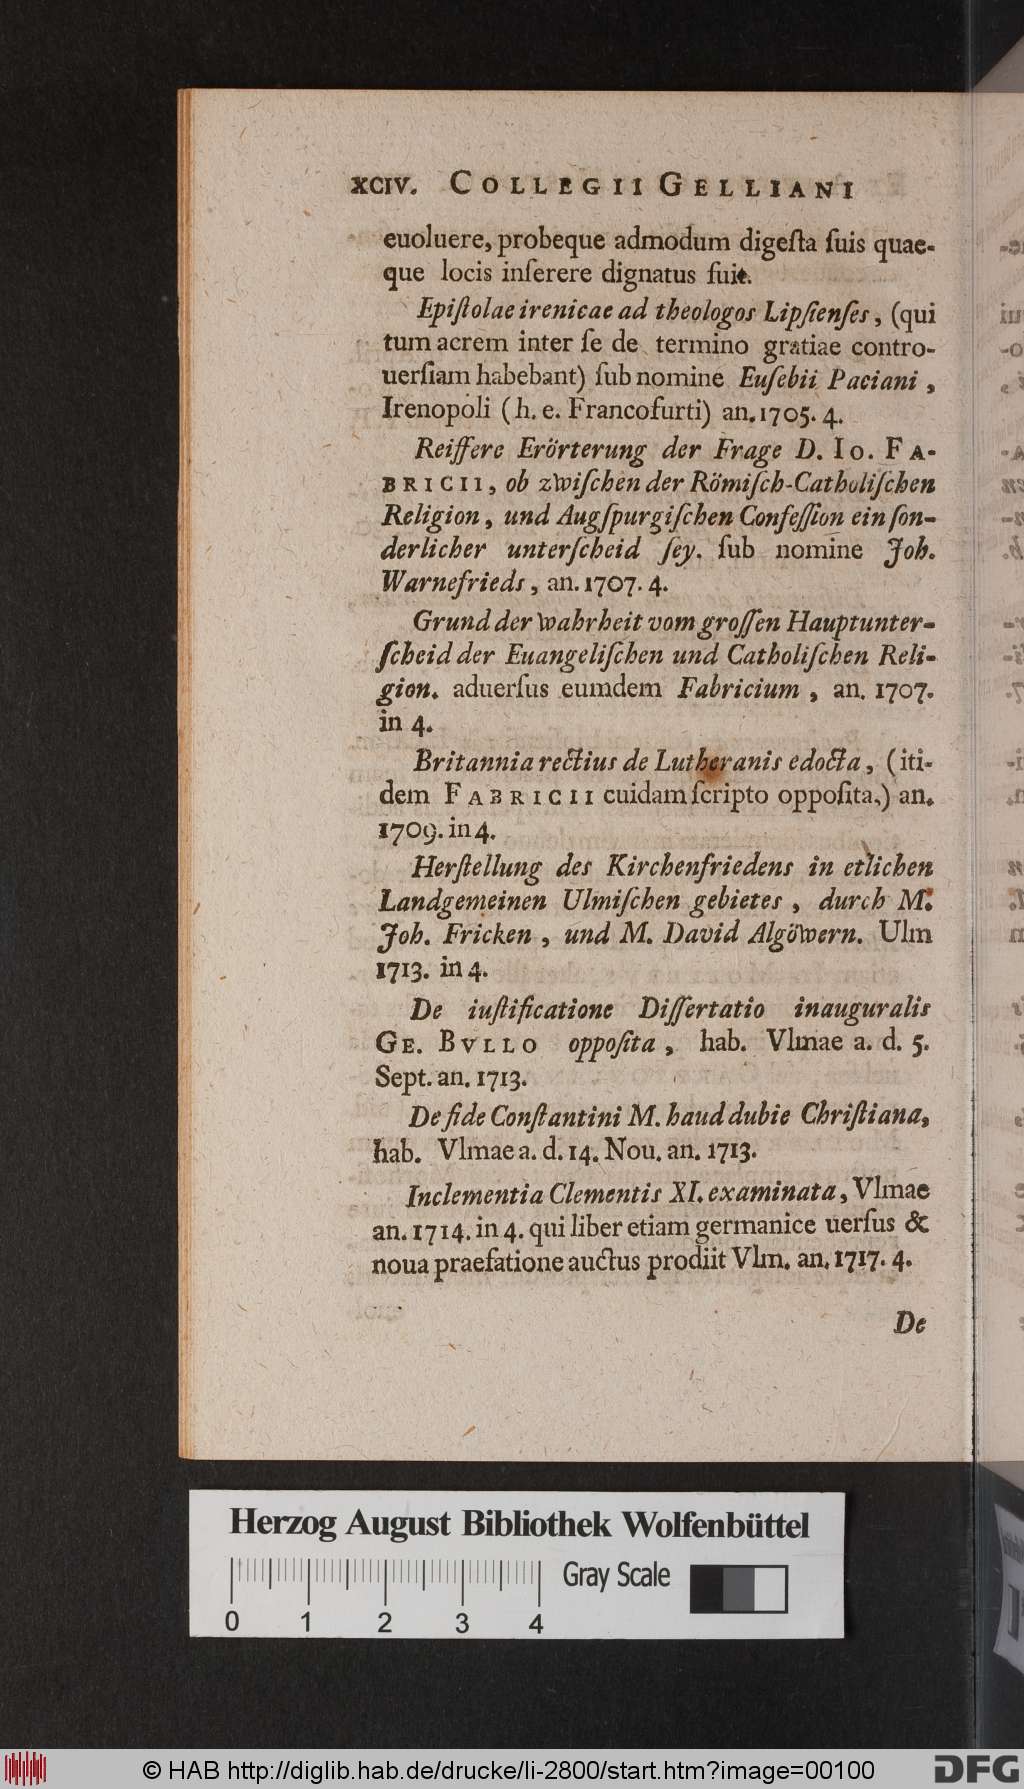 XCIV. COLLEGII GELLIANI
euoluere, probeque admodum digeſta ſuis quae-
que locis inſerere dignatus fuit.
Epiſtolae irenicae ad theologos Lipſienſes, (qui
tum acrem inter ſe de termino gratiae contro-
uerſiam habebant) ſub nomine Euſebii Paciani,
Irenopoli (h. e. Francofurti) an. 1705. 4.
Reiffere Erörterung der Frage D. IO. FA-
BRICII, ob zwiſchen der Römiſch-Catholiſchen
Religion, und Augſpurgiſchen Confeſſion ein ſon-
derlicher unterſcheid ſey. ſub nomine Joh.
Warnefrieds, an. 1707. 4.
Grund der wahrheit vom groſſen Hauptunter-
ſcheid der Euangeliſchen und Catholiſchen Reli-
gion. aduerſus eumdem Fabricium, an. 1707.
in 4.
Britannia rectius de Lutheranis edocta, (iti-
dem FABRICII cuidam ſcripto oppoſita,) an.
1709. in 4.
Herſtellung des Kirchenfriedens in etlichen
Landgemeinen Ulmiſchen gebietes, durch M.
Joh. Fricken, und M. David Algöwern. Ulm
1713. in 4.
De iuſtificatione Diſſertatio inauguralis
GE. BVLLO oppoſita, hab. Vlmae a. d. 5.
Sept. an. 1713.
De fide Conſtantini M. haud dubie Chriſtiana,
hab. Vlmae a. d. 14. Nou. an. 1713.
Inclementia Clementis XI. examinata, Vlmae
an. 1714. in 4. qui liber etiam germanice uerſus &
noua praefatione auctus prodiit Vlm. an. 1717. 4.
De
Herzog August Bibliothek Wolfenbüttel
Gray Scale
0 1 2 3 4
© HAB http://diglib.hab.de/drucke/li-2800/start.htm?image=00100
DFG